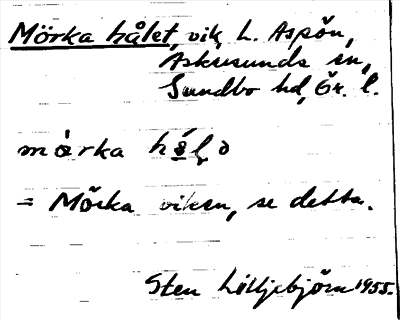 Mörka hålet, vik, L. Aspön,
Askersunds sn,
Sundbo hd, Ör. l.
mȧrka hȧ̱l̨o
= Mörka viken, se detta.
Sten Lilljebjörn 1955.